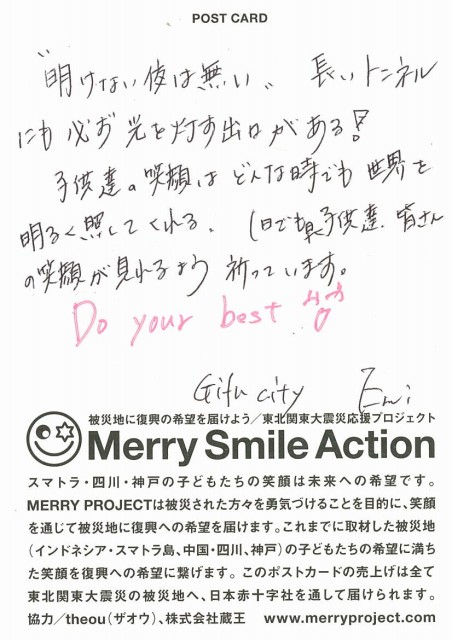 POST CARD
"明けない夜は無い" 長いトンネル
にも必ず光を灯す出口がある!
子供達の笑顔はどんな時でも世界を
明るく照してくれる。1日でも早く子供達、皆さん
の笑顔が見れるよう祈っています。
Do your best
Gifu city Emi
被災地に復興の希望を届けよう/東北関東大震災応援プロジェクト
Merry Smile Action
スマトラ・四川・神戸の子どもたちの笑顔は未来への希望です。
MERRY PROJECTは被災された方々を勇気づけることを目的に、笑顔
を通じて被災地に復興への希望を届けます。これまでに取材した被災地
(インドネシア・スマトラ島、中国・四川、神戸)の子どもたちの希望に満ち
た笑顔を復興への希望に繋げます。このポストカードの売上げは全て
東北関東大震災の被災地へ、日本赤十字社を通して届けられます。
協力/theou(ザオウ)、株式会社蔵王 www.merryproject.com